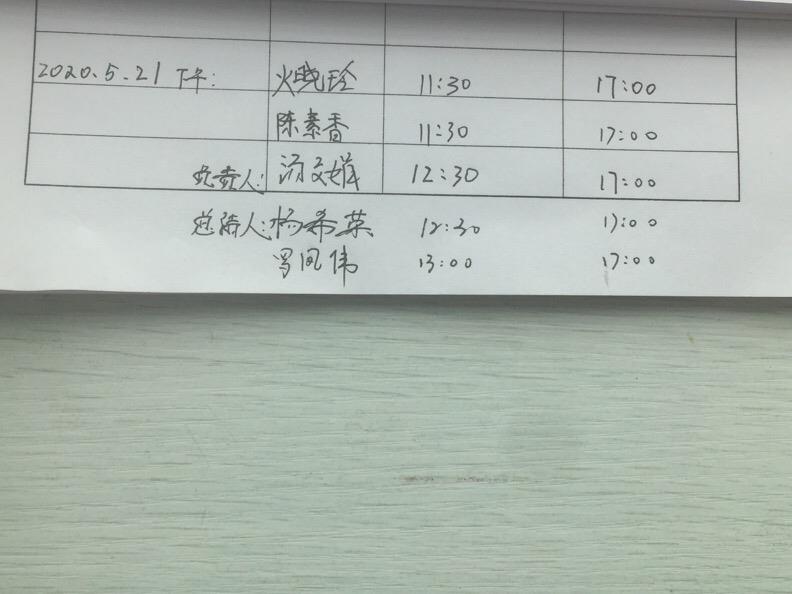 2020.5.21 下午: 火晓玲 11:30 17:00
陈素香 11:30 17:00
负责人: 汤文娥 12:30 17:00
总负责人: 杨希英 12:30 17:00
罗凤伟 13:00 17:00